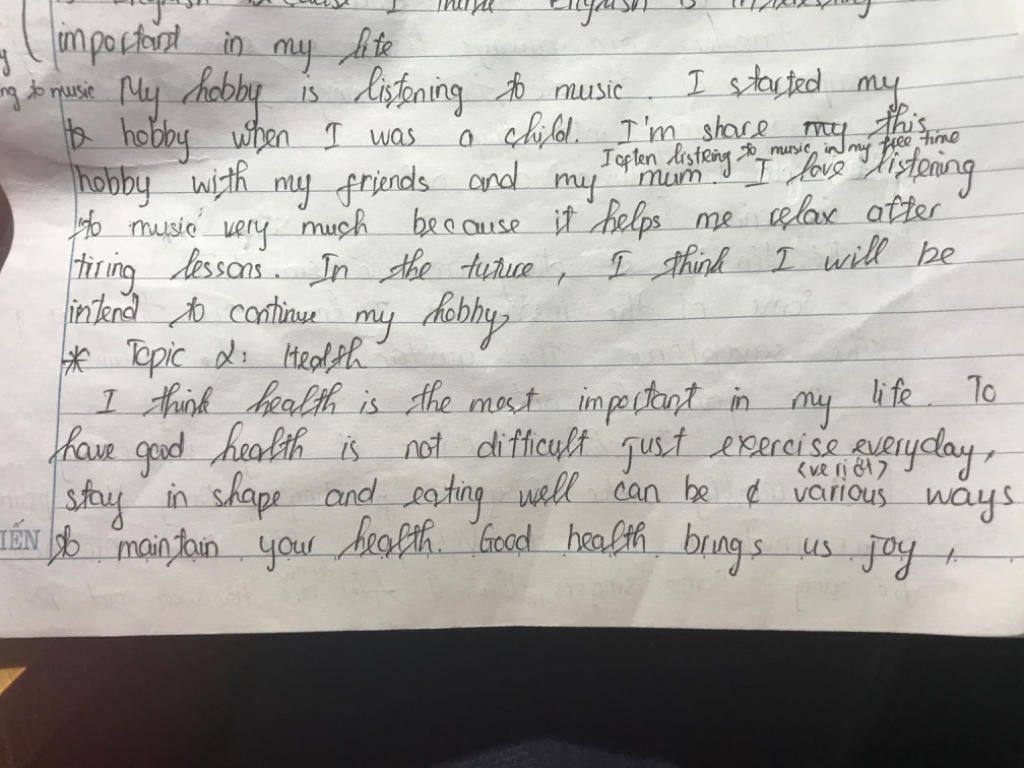 English because I think English is interesting
important in my life
ng to music My hobby is listening to music. I started my
hobby when I was a child. I'm share my this
I often listeing to music in my free time
hobby with my friends and my mum. I love listening
to music very much because it helps me relax after
tiring lessons. In the future, I think I will be
intend to continue my hobby
* Topic 2: Health
I think health is the most important in my life. To
have good health is not difficult just exercise everyday,
stay in shape and eating well can be various ways
to maintain your health. Good health brings us joy,
IẾN